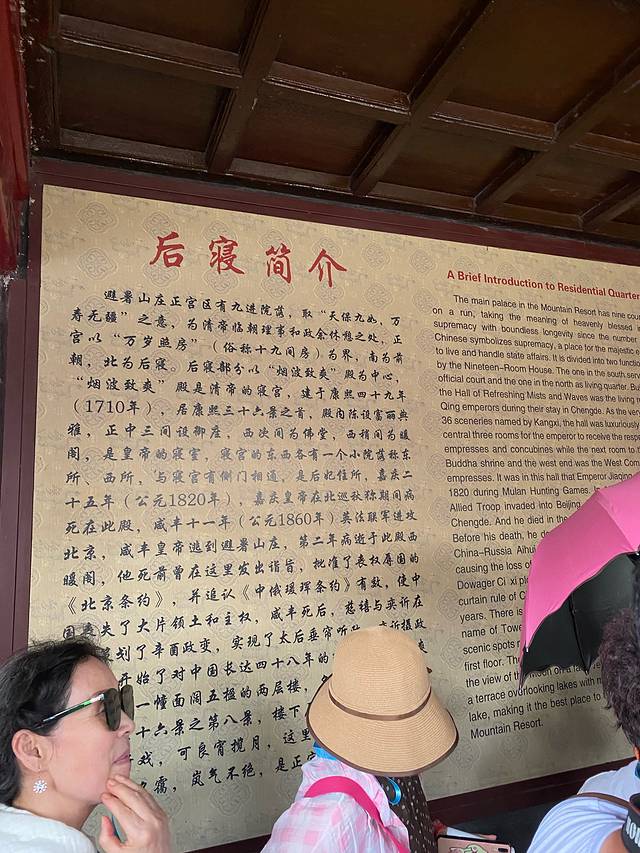 后寝简介
避暑山庄正宫区有九进院落，取“天保九如，万
寿无疆”之意，为清帝临朝理事和政余休憩之处，正
宫以“万岁照房”（俗称十九间房）为界，南为前
朝，北为后寝。后寝部分以“烟波致爽”殿为中心，
“烟波致爽”殿是清帝的寝宫，建于康熙四十九年
（1710年），居康熙三十六景之首，殿内陈设富丽典
雅，正中三间设御座，西次间为佛堂，西稍间为暖
阁，是皇帝的寝室，寝宫的东西各有一个小院落称东
所、西所，与寝宫有侧门相通，是后妃住所，嘉庆二
十五年（公元1820年），嘉庆皇帝在北巡秋狝期间病
死在此殿，咸丰十一年（公元1860年）英法联军进攻
北京，咸丰皇帝逃到避暑山庄，第二年病逝于此殿西
暖阁，他死前曾在这里发出诣旨，批准了丧权辱国的
《北京条约》，并追认《中俄瑷珲条约》有效，使中
国丧失了大片领土和主权，咸丰死后，慈禧与奕訢在
划了辛酉政变，实现了太后垂帘听
开始了对中国长达四十八年的
一幢面阔五楹的两层楼，
十六景之第八景，楼下
戏，可良宵揽月，这里
霭，岚气不绝，是正宫
A Brief Introduction to Residential Quarter
The main palace in the Mountain Resort has nine cou
on a run, taking the meaning of heavenly blessed
supremacy with boundless longevity since the number
Chinese symbolizes supremacy, a place for the majestic e
to live and handle state affairs. It is divided into two function
by the Nineteen-Room House. The one in the south serv
official court and the one in the north as living quarter. Bu
the Hall of Refreshing Mists and Waves was the living r
Qing emperors during their stay in Chengde. As the ver
36 sceneries named by Kangxi, the hall was luxuriously
central three rooms for the emperor to receive the resp
empresses and concubines while the next room to t
Buddha shrine and the west end was the West Com
emperors. It was in this hall that Emperor Jiaqing
1820 during Mulan Hunting Games. In
Allied Troop invaded into Beijing
Chengde. And he died in the
Before his death, he d
China-Russia Aihui
causing the loss of
Dowager Ci xi pl
curtain rule of C
years. There is
name of Towe
scenic spots
first floor. The
the view of the moon on a
a terrace overlooking lakes with
lake, making it the best place to
Mountain Resort.